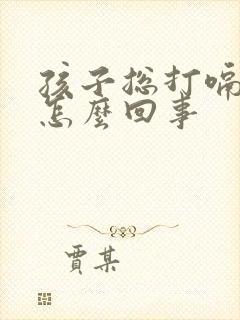 孩子总打嗝
怎麼回事
贾某